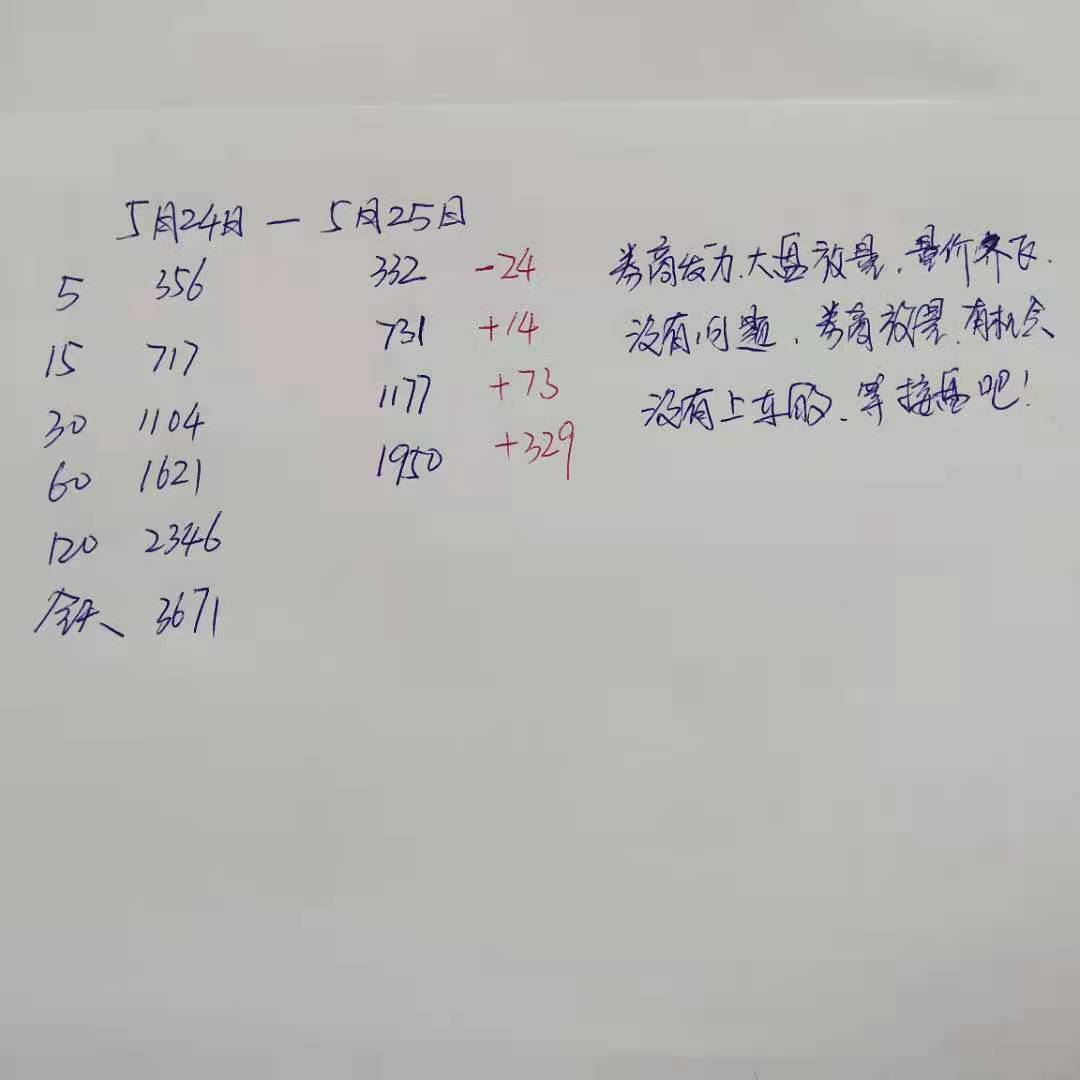 5月24日 — 5月25日
5 356 332 -24
15 717 731 +14
30 1104 1177 +73
60 1621 1950 +329
120 2346
全天 3671
券商发力、大盘放量、量价齐飞.
没有问题、券商放量、有机会
没有上车的、等接盘吧！